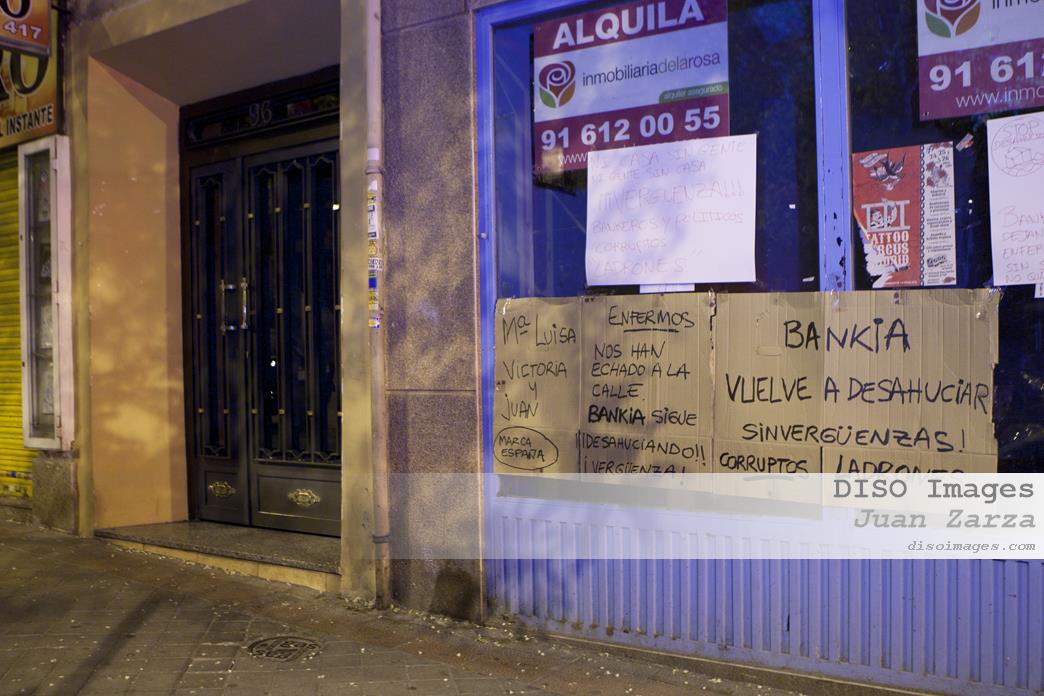 417
RO
L INSTANTE
96
ALQUILA
inmobiliariadelarosa
alquiler asegurado
91 612 00 55
www
NI CASA SIN GENTE
NI GENTE SIN CASA
¡¡VERGÜENZA!!!
BANQEROS Y POLITICOS
CORRUPTOS
"LADRONES"
inmob
91 612
www.inmo
TATTOO
CIRCUS
MADRID
STOP
DESAHUCIOS
BANK
DEJAN
ENFER
SIN
NO QU
Mª LUISA
VICTORIA
Y
JUAN
MARCA
ESPAÑA
ENFERMOS
NOS HAN
ECHADO A LA
CALLE.
BANKIA SIGUE
¡¡DESAHUCIANDO!!
¡VERGÜENZA!
BANKIA
VUELVE A DESAHUCIAR
SINVERGÜENZAS!
CORRUPTOS LADRONES
DISO Images
Juan Zarza
disoimages.com